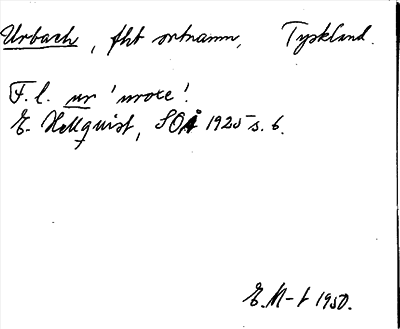 Urbach, fht ortnamn, Tyskland.
F.l. ur 'uroxe'.
E. Hellquist, SOÅ 1925 s. 6.
E. M-t 1950.